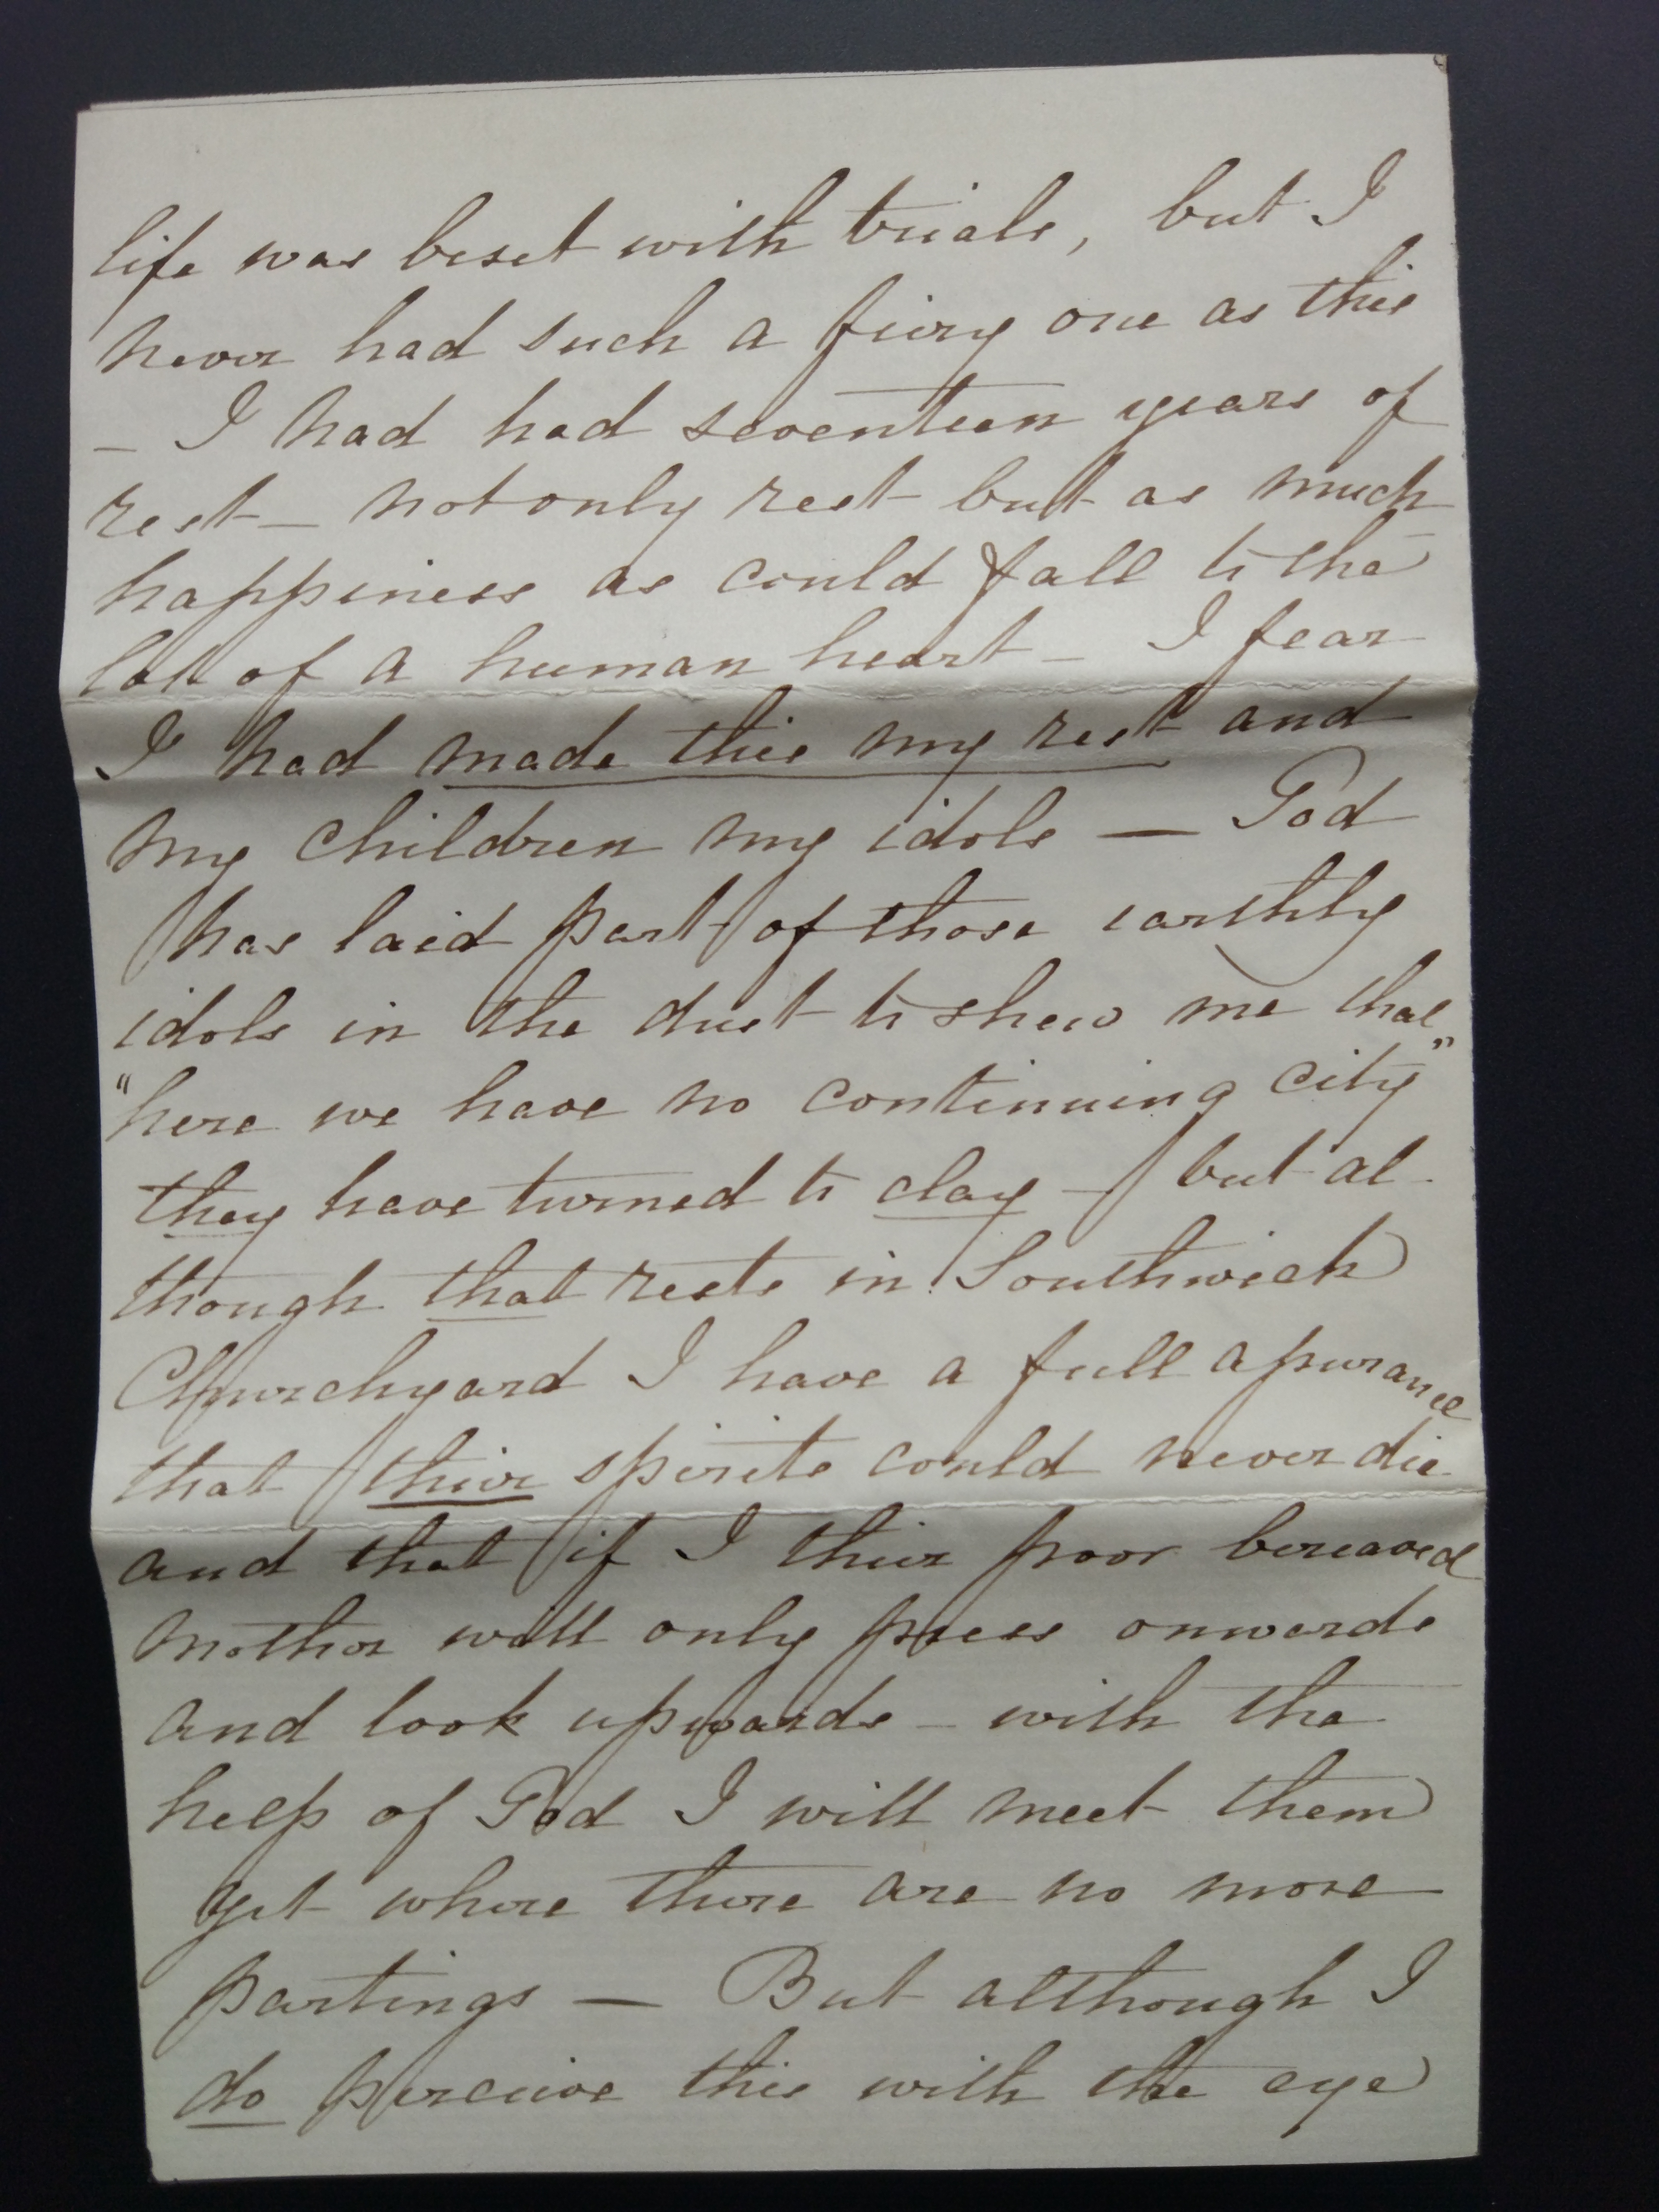 life was beset with trials, but I
never had such a fiery one as this
— I had had seventeen years of
rest — not only rest but as much
happiness as could fall to the
lot of a human heart — I fear
I had made this my rest and
my children my idols — God
has laid part of those earthly
idols in the dust to shew me that
"here we have no continuing city"
they have turned to clay — but al-
though that rests in Southwick
Churchyard I have a full assurance
that their spirits could never die
and that if I their poor bereaved
mother will only press onwards
and look upwards — with the
help of God I will meet them
yet where there are no more
partings — But although I
do perceive this with the eye